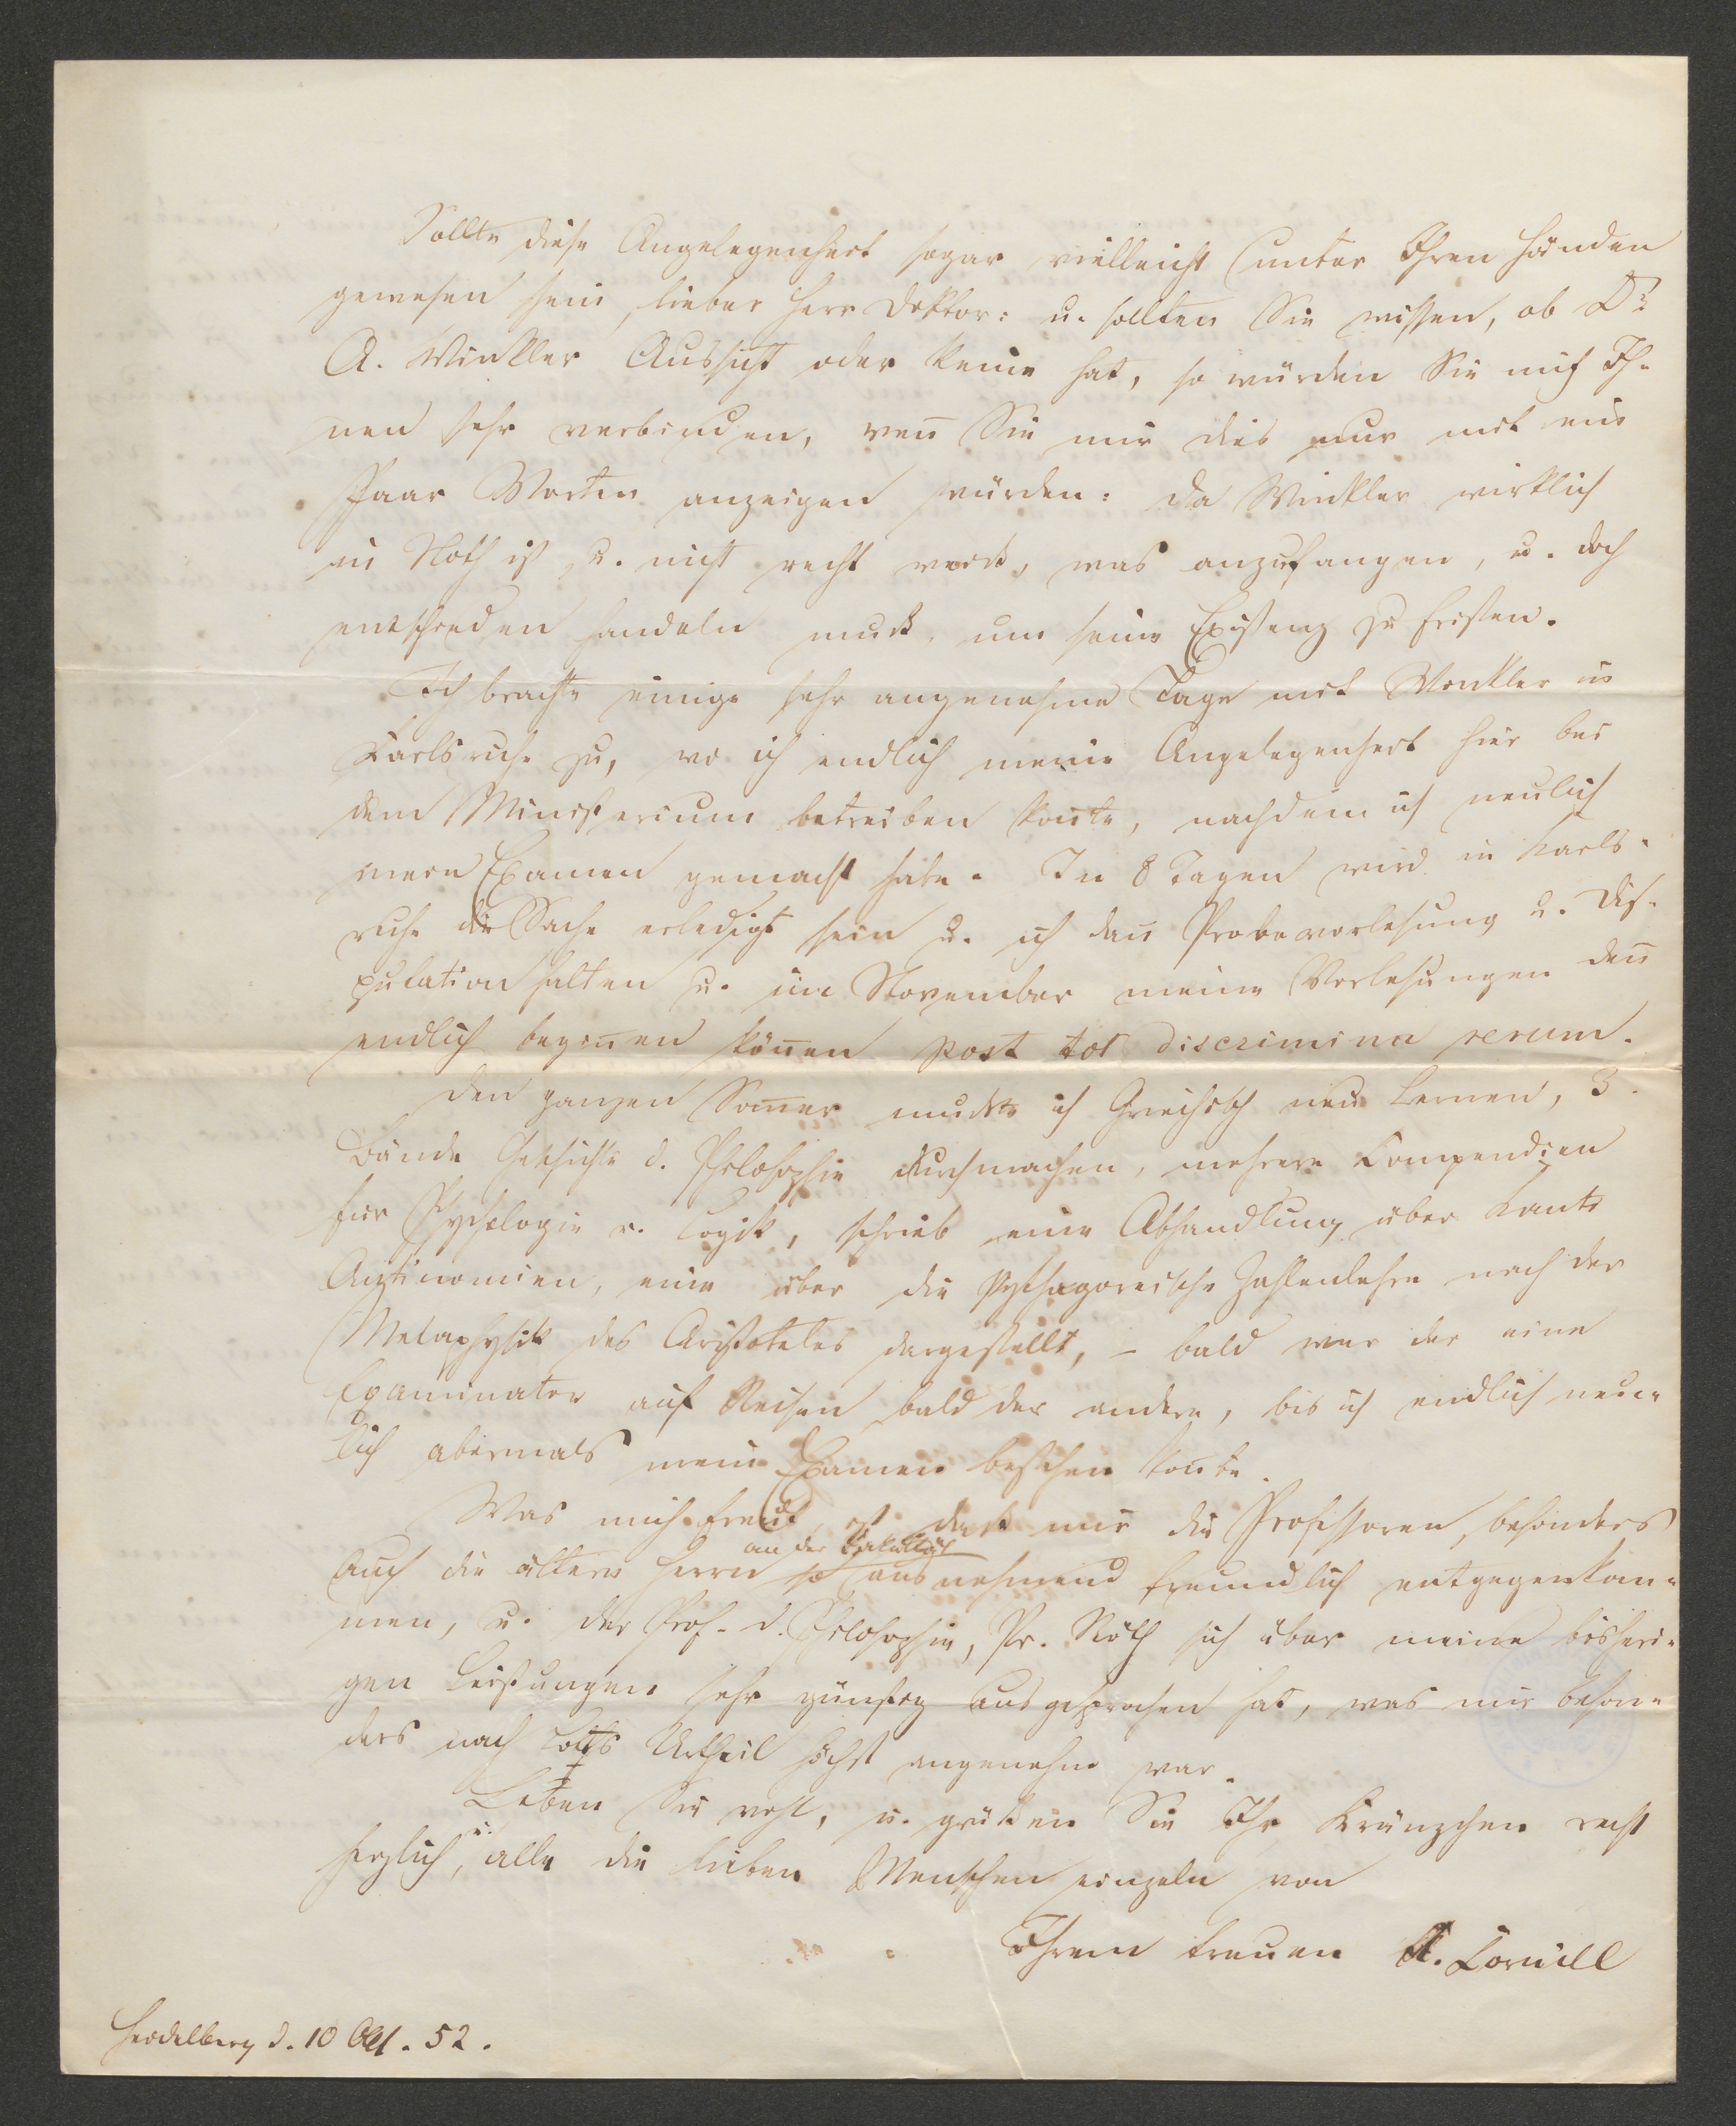 Sollte diese Angelegenheit sogar vielleicht unter Ihren Händen
gewesen sein, lieber Herr Doktor: u. sollten Sie wissen, ob Dr.
A. Winkler Aussicht oder keine hat, so würden Sie mich Ih-
nen sehr verbinden, wen̄ Sie mir dies nur mit ein
Paar Worten anzeigen würden: da Winkler wirklich
in Noth ist, u. nicht recht weiß, was anzufangen, u. doch
entschieden handeln muß, um seine Existenz zu fristen.
Ich brachte einige sehr angenehme Tage mit Winkler in
Karlsruhe zu, wo ich endlich meine Angelegenheit hier bei
dem Ministerium betreiben kon̄te, nachdem ich neulich
mein Examen gemacht habe. In 8 Tagen wird in Karls-
ruhe die Sache erledigt sein u. ich dan̄ Probevorlesung u. Dis-
putation halten u. im November meine Vorlesungen den̄
endlich begin̄en kön̄en post tot discrimina rerum.
Den ganzen Som̄er mußte ich Griechisch neu lernen, 3
Bände Geschichte d. Philosophie durchmachen, mehrere Compendien
für Psychologie u. Logik, schrieb eine Abhandlung über Kants
Antinomien, eine über die Pythagoreische Zahlenlehre nach der
Metaphysik des Aristoteles dargestellt, – bald war der eine
Examinator auf Reisen bald der andere, bis ich endlich neu-
lich abermals mein Examen bestehen kon̄te.
Was mich freut, ist daß mir die Professoren, besonders
auch die ältern Herrn an der Fakultät so ausnehmend freundlich entgegenkam-
men, u. der Prof. d. Philosophie, Pr. Röth sich über meine bisheri-
gen Leistungen sehr günstig ausgesprochen hat, was mir beson-
ders nach Urtheil höchst angenehm war.
Leben Sie wohl, u. grüßen Sie Ihr Kränzchen recht
herzlich, u. alle die lieben Menschen einzeln von
Ihrem treuen A. Cornill
Heidelberg d. 10 Okt. 52.